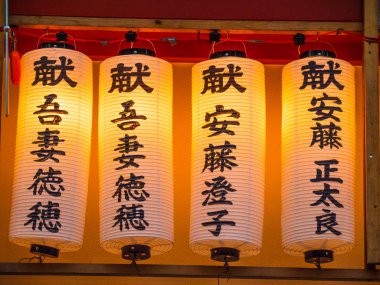 献 吾妻徳穂
献 吾妻徳穂
献 安藤澄子
献 安藤正太良